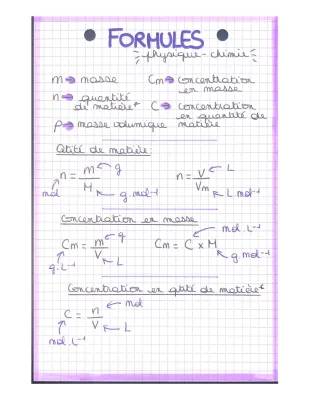 FORMULES
physique-chimie
m → masse
Cm → concentration en masse
n → quantité de matière
C → concentration en quantité de matière
ρ → masse volumique
Qtité de matière:
n = m/M
g
mol
g.mol⁻¹
n = V/Vm
L
L.mol⁻¹
Concentration en masse
Cm = m/V
g
g.L⁻¹
L
Cm = C × M
mol.L⁻¹
g.mol⁻¹
Concentration en qtité de matière
C = n/V
mol
mol.L⁻¹
L